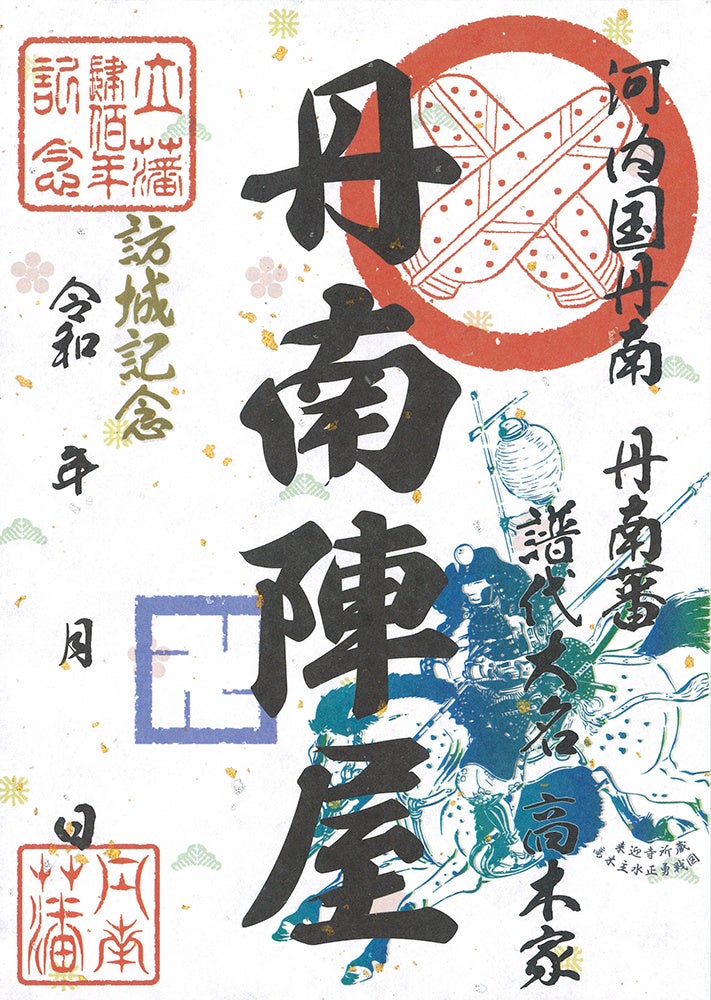 河内国丹南 丹南蕃
譜代大名 高木家
丹南陣屋
立藩
肆佰年
記念
訪城記念
令和 年 月 日
丹南
藩
来迎寺所蔵
高木主水正勇戦図